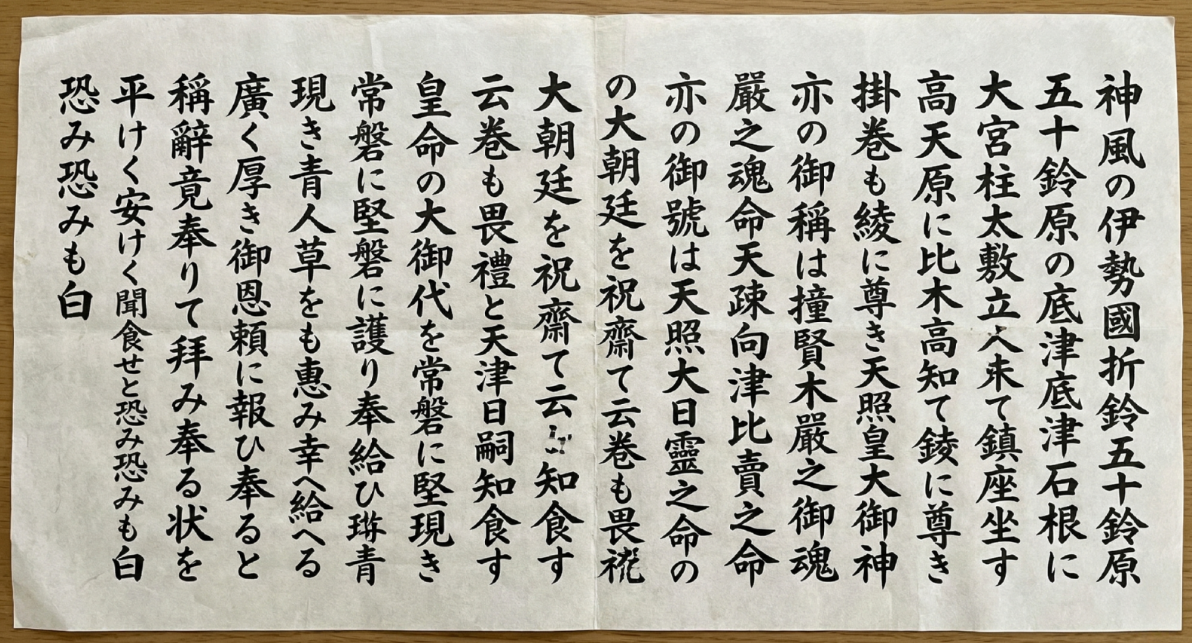 神風の伊勢國折鈴五十鈴原
五十鈴原の底津底津石根に
大宮柱太敷立て鎮座坐す
高天原に比木高知て錂に尊き
掛巻も綾に尊き天照皇大御神
亦の御稱は撞賢木嚴之御魂
嚴之魂命天疎向津比賣之命
亦の御號は天照大日靈之命の
の大朝廷を祝齋て云巻も畏
大朝廷を祝齋て云知食す
云巻も畏禮と天津日嗣知食す
皇命の大御代を常磐に堅現き
常磐に堅磐に護り奉給ひ青
現き青人草をも惠み幸へ給へる
廣く厚き御恩頼に報ひ奉ると
稱辭竟奉りて拜み奉る状を
平けく安けく聞食せと恐み恐みも白
恐み恐みも白